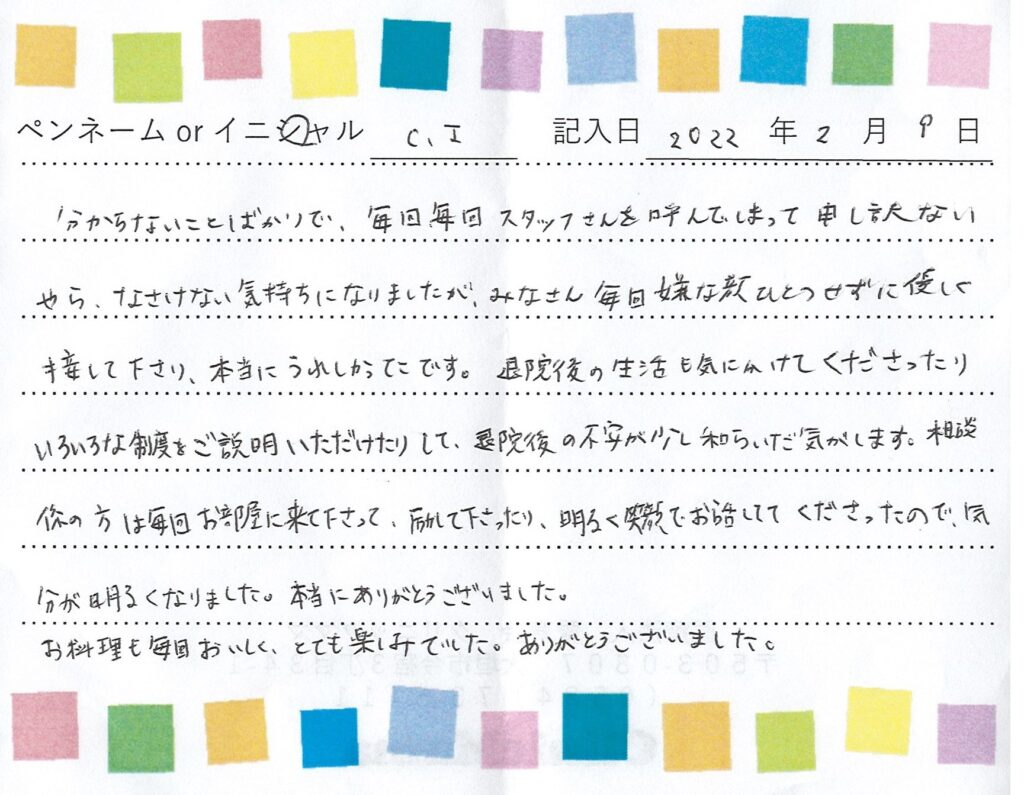 ペンネーム or イニシャル C.I 記入日 2022 年 2 月 9 日
分からないことばかりで、毎回毎回スタッフさんを呼んでしまって申し訳ない
やら、なさけない気持ちになりましたが、みなさん毎回嫌な顔ひとつせずに優しく
接して下さり、本当にうれしかったです。退院後の生活も気にかけてくださったり
いろいろな制度をご説明いただけたりして、退院後の不安が少し和らいだ気がします。相談
係の方は毎回お部屋に来て下さって、励して下さったり、明るく笑顔でお話してくださったので、気
分が明るくなりました。本当にありがとうございました。
お料理も毎日おいしく、とても楽しみでした。ありがとうございました。